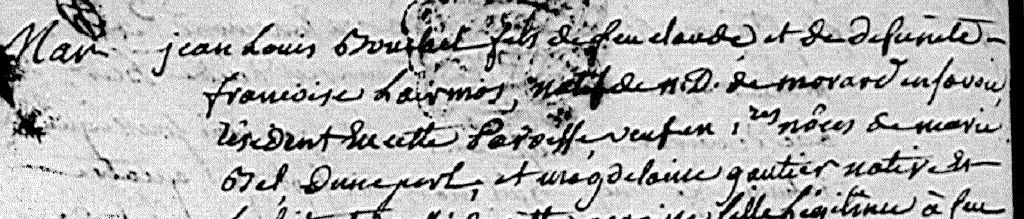 Mar jean Louis Bouchet fils de feu claude et de defuncte
francoise Lairmos natif de N.D. de morard en savoie
résident en cette Paroisse veuf en 1res nôces de marie
Bel Dune part, et magdelaine gautier native et
fille légitime à feu